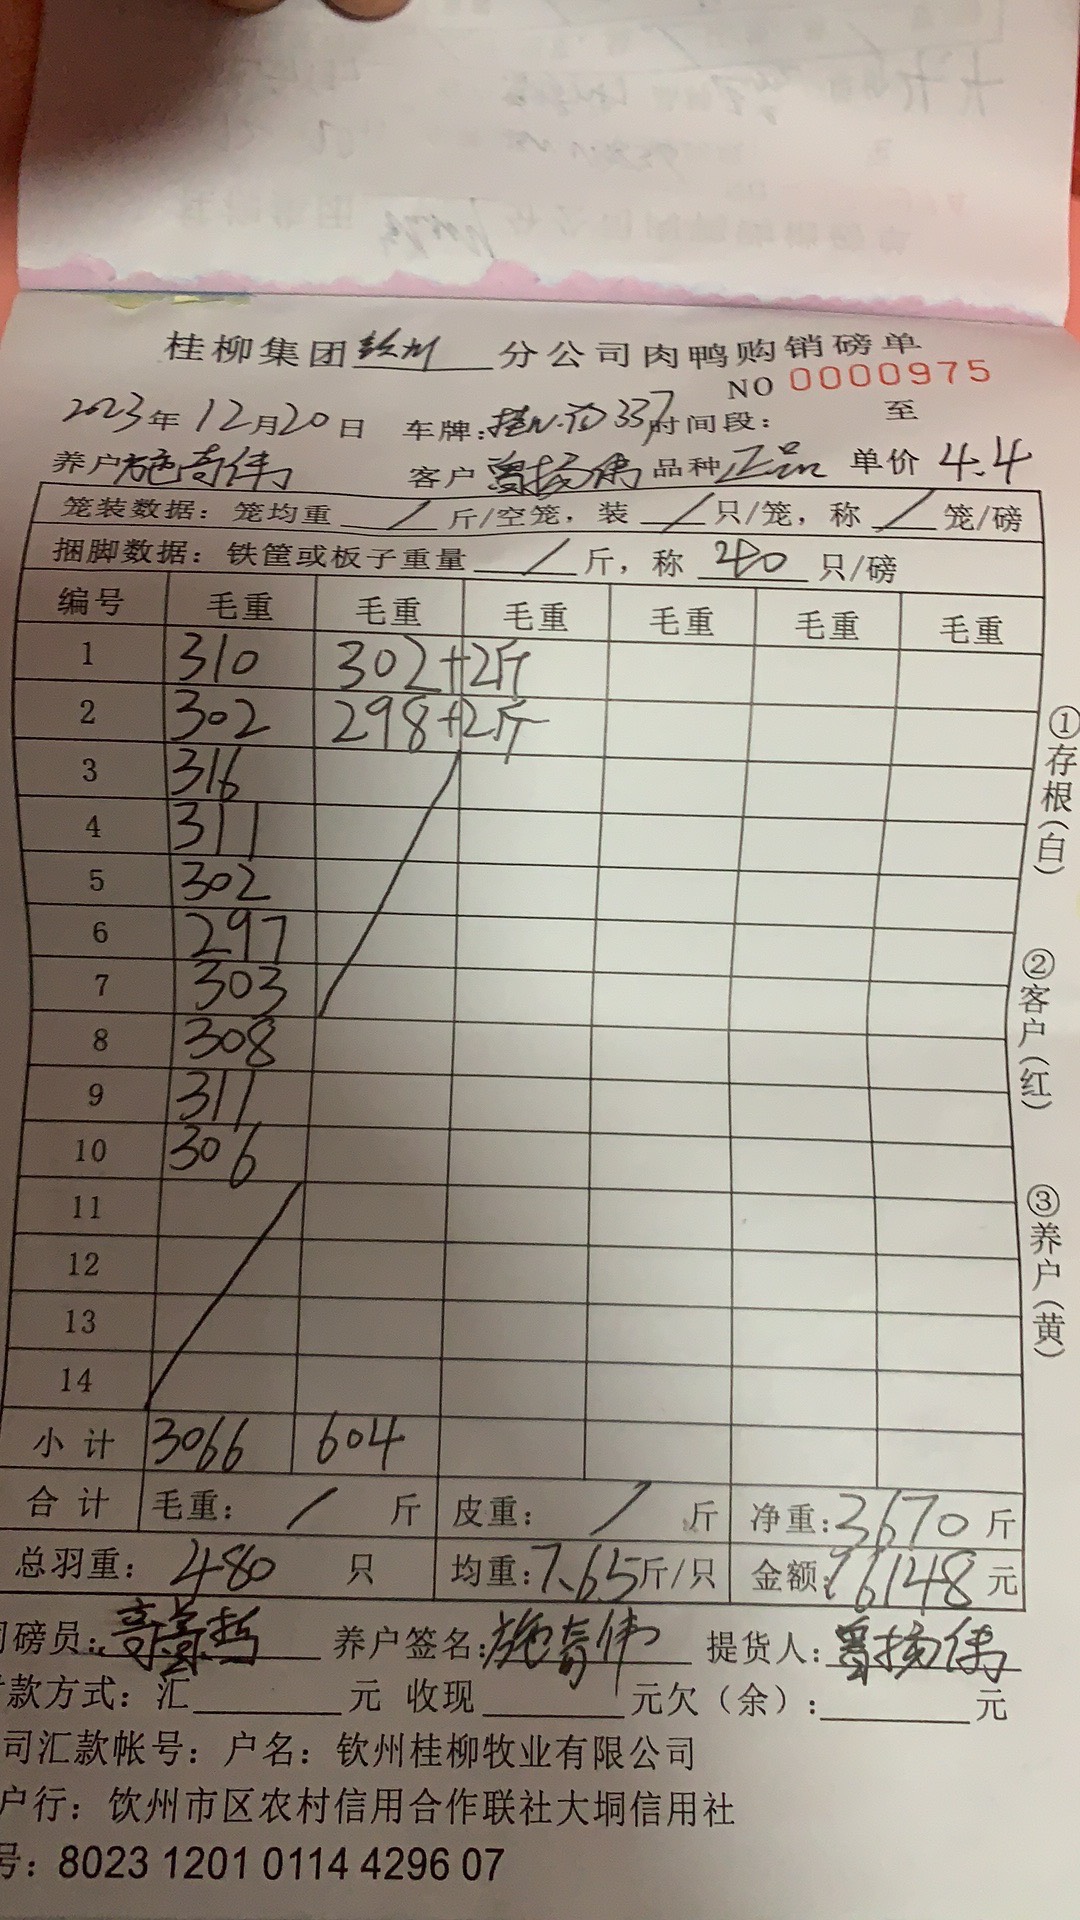 桂柳集团钦州分公司肉鸭购销磅单
NO 0000975
2023年12月20日 车牌: 337时间段: 至
养户施青伟 客户曾扬伟 品种正品 单价 4.4
笼装数据: 笼均重 / 斤/空笼, 装 / 只/笼, 称 / 笼/磅
捆脚数据: 铁筐或板子重量 / 斤, 称 240 只/磅
编号 毛重 毛重 毛重 毛重 毛重 毛重
1 310 302+2斤
2 302 298+2斤
3 316
4 311
5 302
6 297
7 303
8 308
9 311
10 306
11
12
13
14
小计 3066 604
合计 毛重: / 斤 皮重: / 斤 净重:3670 斤
总羽重: 480 只 均重:7.65斤/只 金额:16148元
磅员: 养户签名:施青伟 提货人:曾扬伟
款方式: 汇 元 收现 元欠(余): 元
司汇款帐号: 户名: 钦州桂柳牧业有限公司
户行: 饮州市区农村信用合作联社大垌信用社
号: 8023 1201 0114 4296 07
①存根(白)
②客户(红)
③养户(黄)